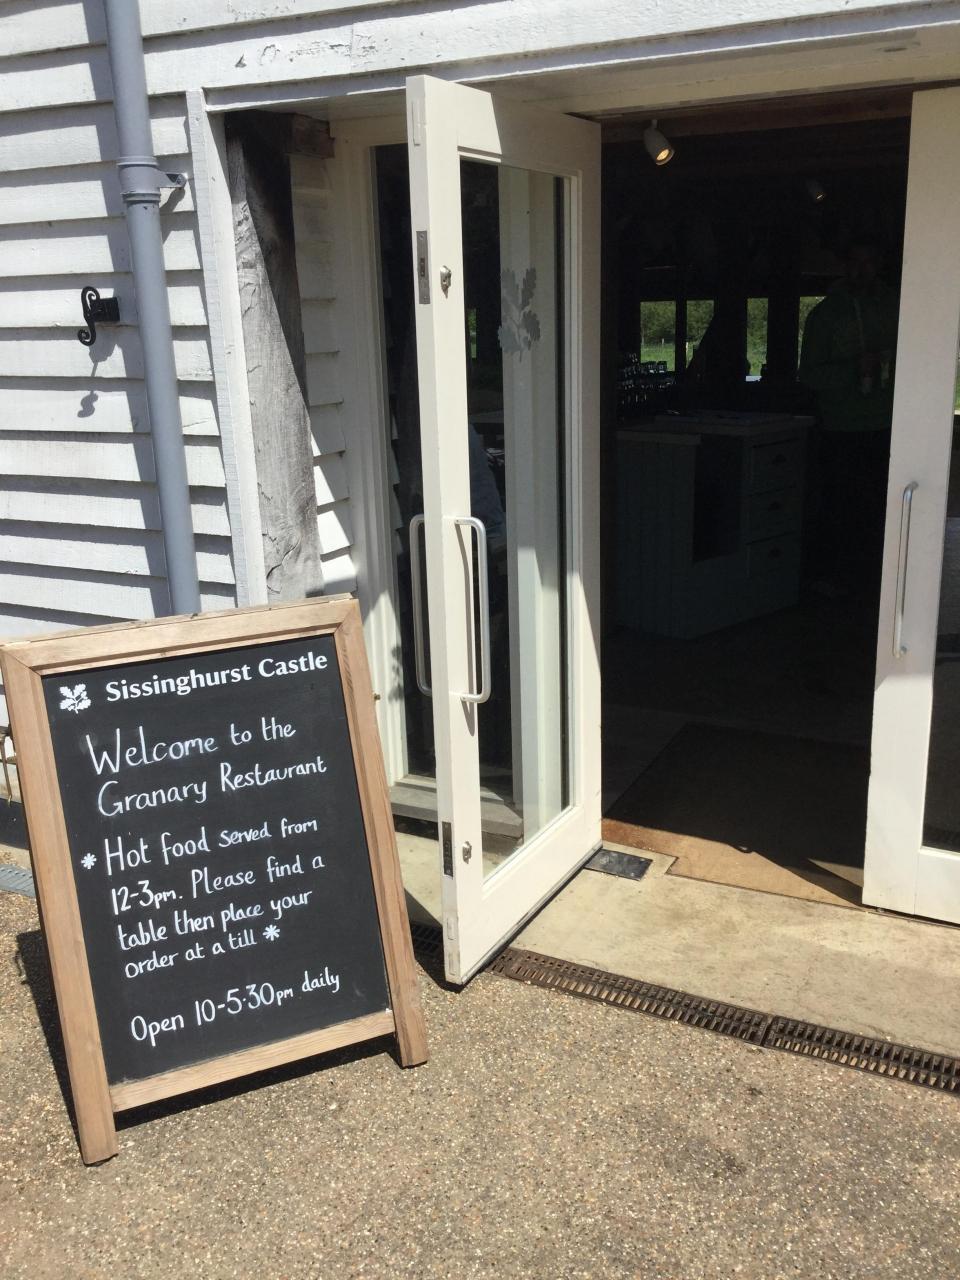 Sissinghurst Castle
Welcome to the
Granary Restaurant
* Hot food served from
12-3pm. Please find a
table then place your
order at a till *
Open 10-5.30pm daily